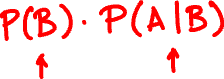 P(B) · P(A|B)